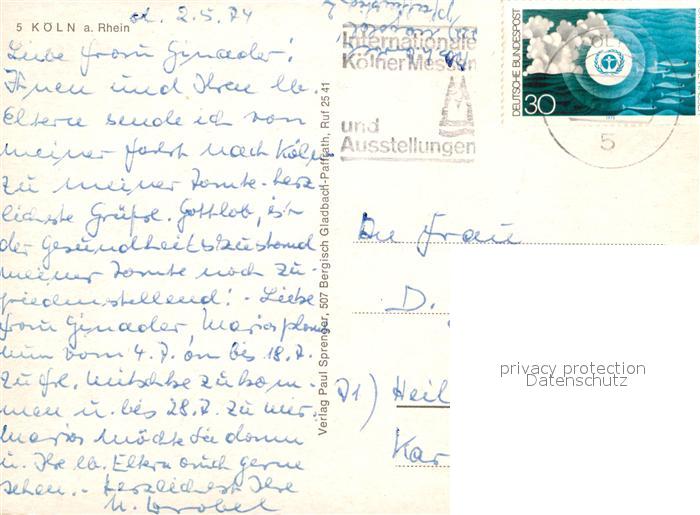 5 KÖLN a. Rhein
d. 2.5.74
Liebe Frau Ginader!
Ihnen und Ihren lb.
Eltern sende ich von
meiner Fahrt nach Köln
zu meiner Tante herz-
lichste Grüße. Gottlob, ist
der Gesundheitszustand
meiner Tante noch zu-
friedenstellend! - Liebe
Frau Ginader, Maria plant
nun vom 4.7. an bis 18.7.
zu Frl. Nitschke zu kom-
men u. bis 28.7. zu mir.
Maria möchte Sie dann
u. Ihre lb. Eltern auch gerne
sehen. - Herzlichst Ihre
Verlag Paul Sprenger, 507 Bergisch Gladbach-Paffrath, Ruf 25 41
Internationale
Kölner Messen
und
Ausstellungen
DEUTSCHE BUNDESPOST
30
5
An Frau
D.
71) Heil
Kar
privacy protection
Datenschutz